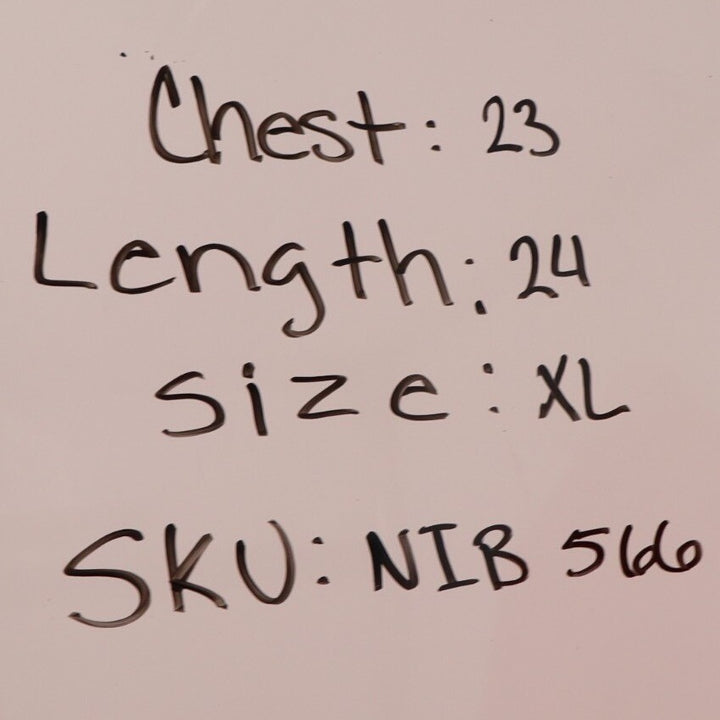 Chest: 23
Length: 24
Size: XL
SKU: NIB 566